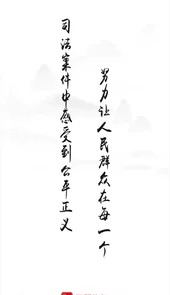 努力让人民群众在每一个
司法案件中感受到公平正义